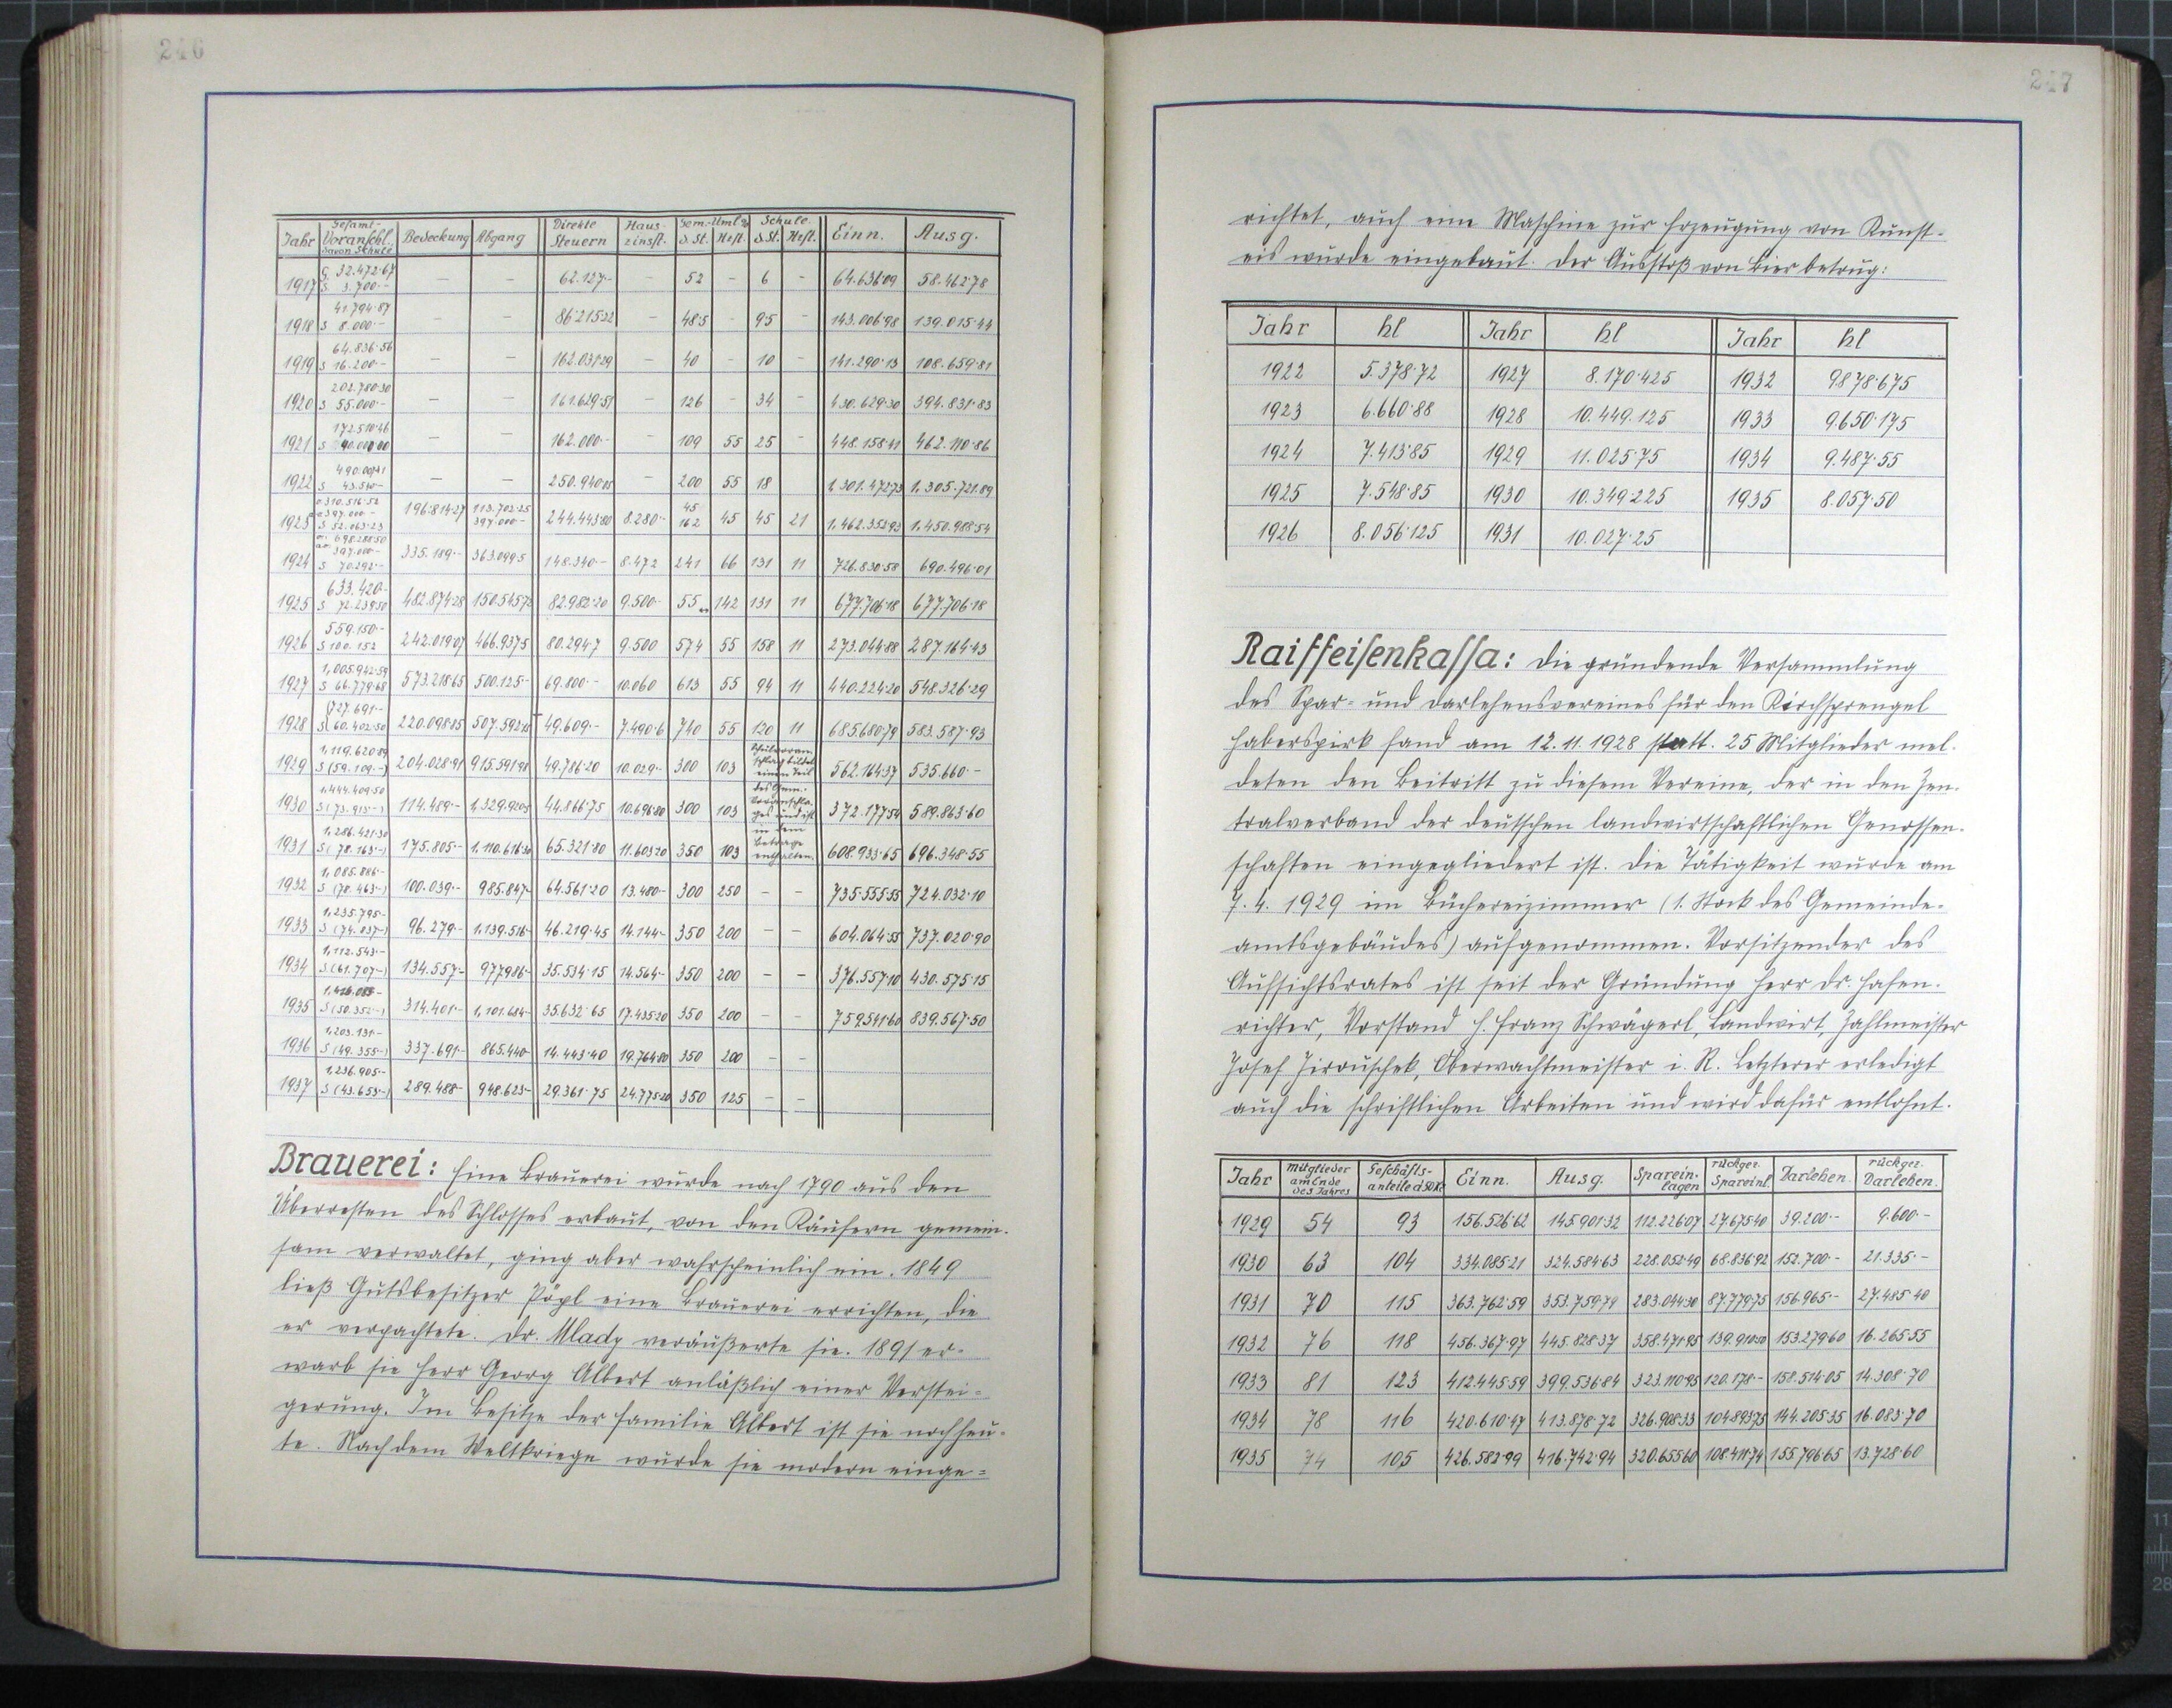 246
Jahr | Gesamt-Voranschl. davon Schule | Bedeckung | Abgang | Direkte Steuern | Haus-zinsst. | Gem.-Uml. % d. St. | Hzst. | Schule d. St. | Hzst. | Einn. | Ausg.
1917 | G 32.472·67 S 3.700·- | - | - | 62.127·- | - | 52 | - | 6 | - | 64.636·09 | 58.462·78
1918 | 41.794·87 S 8.000·- | - | - | 86.215·22 | - | 48·5 | - | 9·5 | - | 143.006·98 | 139.015·44
1919 | 64.836·56 S 16.200·- | - | - | 162.031·29 | - | 40 | - | 10 | - | 141.290·13 | 108.659·81
1920 | 202.780·30 S 55.000·- | - | - | 161.629·51 | - | 126 | - | 34 | - | 430.629·30 | 394.831·83
1921 | 172.510·46 S 40.000·00 | - | - | 162.000·- | - | 109 | 55 | 25 | - | 448.158·41 | 462.110·86
1922 | S 43.510·- | - | - | 250.940·05 | - | 200 | 55 | 18 | 1,301.472·73 | 1,305.721·89
1923 | o 310.516·52 ao 397.000·- S 52.063·23 | 196.814·27 | 113.702·25 397.000·- | 244.443·80 | 8.280·- | 45 162 | 45 | 45 | 21 | 1,462.352·92 | 1,450.988·54
1924 | o. 698.288·50 ao 397.000·- S 70.292·- | 335.189·- | 363.099·5 | 148.340·- | 8.472 | 241 | 66 | 131 | 11 | 726.830·58 | 690.496·01
1925 | 633.420·- S 72.239·50 | 482.874·28 | 150.545·72 | 82.982·20 | 9.500·- | 55 | 142 | 131 | 11 | 677.706·18 | 677.706·18
1926 | 559.150·- S 100.152 | 242.019·07 | 466.937·5 | 80.294·7 | 9.500 | 574 | 55 | 158 | 11 | 273.044·88 | 287.164·43
1927 | 1,005.942·59 S 66.779·68 | 573.218·65 | 500.125·- | 69.800·- | 10.060 | 613 | 55 | 94 | 11 | 440.224·20 | 548.326·29
1928 | 727.691·- S (60.402·50 | 220.098·85 | 507.592·15 | 49.609·- | 7.490·6 | 740 | 55 | 120 | 11 | 685.680·79 | 583.587·93
1929 | 1,119.620·89 S (59.109·-) | 204.028·91 | 915.591·98 | 49.786·20 | 10.029·- | 300 | 103 | Schulvoranschlag bildet einen Teil | 562.164·37 | 535.660·-
1930 | 1,444.409·50 S (73.915·-) | 114.489·- | 1,329.920·5 | 44.866·75 | 10.696·80 | 300 | 103 | des Gem. Voranschlages und ist | 372.177·54 | 589.863·60
1931 | 1,286.421·30 S (78.163·-) | 175.805·- | 1,110.616·30 | 65.321·80 | 11.603·20 | 350 | 103 | in dem Betrage enthalten. | 608.933·65 | 696.348·55
1932 | 1,085.886·- S (78.463·-) | 100.039·- | 985.847·- | 64.561·20 | 13.480·- | 300 | 250 | - | - | 735.555·55 | 724.032·10
1933 | 1,235.795·- S (74.037·-) | 96.279·- | 1,139.516·- | 46.219·45 | 14.144·- | 350 | 200 | - | - | 604.064·55 | 737.020·90
1934 | 1,112.543·- S (61.707·-) | 134.557·- | 977986·- | 35.534·15 | 14.564·- | 350 | 200 | - | - | 376.557·10 | 430.575·15
1935 | S (50.352·-) | 314.401·- | 1,101.684·- | 35.632·65 | 17.435·20 | 350 | 200 | - | - | 759.541·60 | 839.567·50
1936 | 1,203.131·- S (49.355·-) | 337.691·- | 865.440·- | 14.443·40 | 19.764·80 | 350 | 200 | - | -
1937 | 1,236.905·- S (43.653·-) | 289.488·- | 948.623·- | 29.361·75 | 24.775·20 | 350 | 125 | - | -
Brauerei: Eine Brauerei wurde nach 1790 aus den
Überresten des Schlosses erbaut, von den Käufern gemein-
sam verwaltet, ging aber wahrscheinlich ein. 1849
ließ Gutsbesitzer Pöpl eine Brauerei errichten, die
er verpachtete. Dr. Mlady veräußerte sie. 1891 er-
warb sie Herr Georg Albert anläßlich einer Verstei-
gerung. Im Besitze der Familie Albert ist sie noch heu-
te. Nach dem Weltkriege wurde sie modern einge-
247
richtet, auch eine Maschine zur Erzeugung von Kunst-
eis wurde eingebaut. Der Ausstoß von Bier betrug:
Jahr | hl | Jahr | hl | Jahr | hl
1922 | 5.378·72 | 1927 | 8.170·425 | 1932 | 9878·675
1923 | 6.660·88 | 1928 | 10.449.125 | 1933 | 9.650·175
1924 | 7.413·85 | 1929 | 11.025·75 | 1934 | 9.487·55
1925 | 7.548·85 | 1930 | 10.349·225 | 1935 | 8.057·50
1926 | 8.056·125 | 1931 | 10.027·25
Raiffeisenkassa: Die gründende Versammlung
des Spar- und Darlehensvereines für den Kirchsprengel
Haberspirk fand am 12.11.1928 statt. 25 Mitglieder mel-
deten den Beitritt zu diesem Vereine, der in den Zen-
tralverband der deutschen landwirtschaftlichen Genossen-
schaften eingegliedert ist. Die Tätigkeit wurde am
7.4. 1929 im Büchereizimmer (1. Stock des Gemeinde-
amtsgebäudes) aufgenommen. Vorsitzender des
Aufsichtsrates ist seit der Gründung Herr Dr. Hafen-
richter, Vorstand H. Franz Schwägerl, Landwirt, Zahlmeister
Josef Jirouschek, Oberwachtmeister i. R. Letzterer erledigt
auch die schriftlichen Arbeiten und wird dafür entlohnt.
Jahr | Mitglieder am Ende des Jahres | Geschäfts-anteile à 50 K | Einn. | Ausg. | Sparein-lagen | rückgez. Spareinl. | Darlehen | rückgez. Darlehen.
1929 | 54 | 93 | 156.526·62 | 145.901·32 | 112.226·07 | 27.675·40 | 39.200·- | 9.600·-
1930 | 63 | 104 | 334.085·21 | 324.584·63 | 228.052·49 | 68.836·92 | 152.700·- | 21.335·-
1931 | 70 | 115 | 363.762·59 | 353.759·79 | 283.044·30 | 87.779·75 | 156.965·- | 27.485·40
1932 | 76 | 118 | 456.367·97 | 445.828·37 | 358.471·95 | 139.910·50 | 153.279·60 | 16.265·55
1933 | 81 | 123 | 412.445·59 | 399.536·84 | 323.110·95 | 120.178·- | 158.514·05 | 14.308·70
1934 | 78 | 116 | 420.610·47 | 413.878·72 | 326.908·33 | 104.893·75 | 144.205·35 | 16.083·70
1935 | 74 | 105 | 426.582·99 | 416.742·94 | 320.655·60 | 108.411·74 | 155.796·65 | 13.728·60